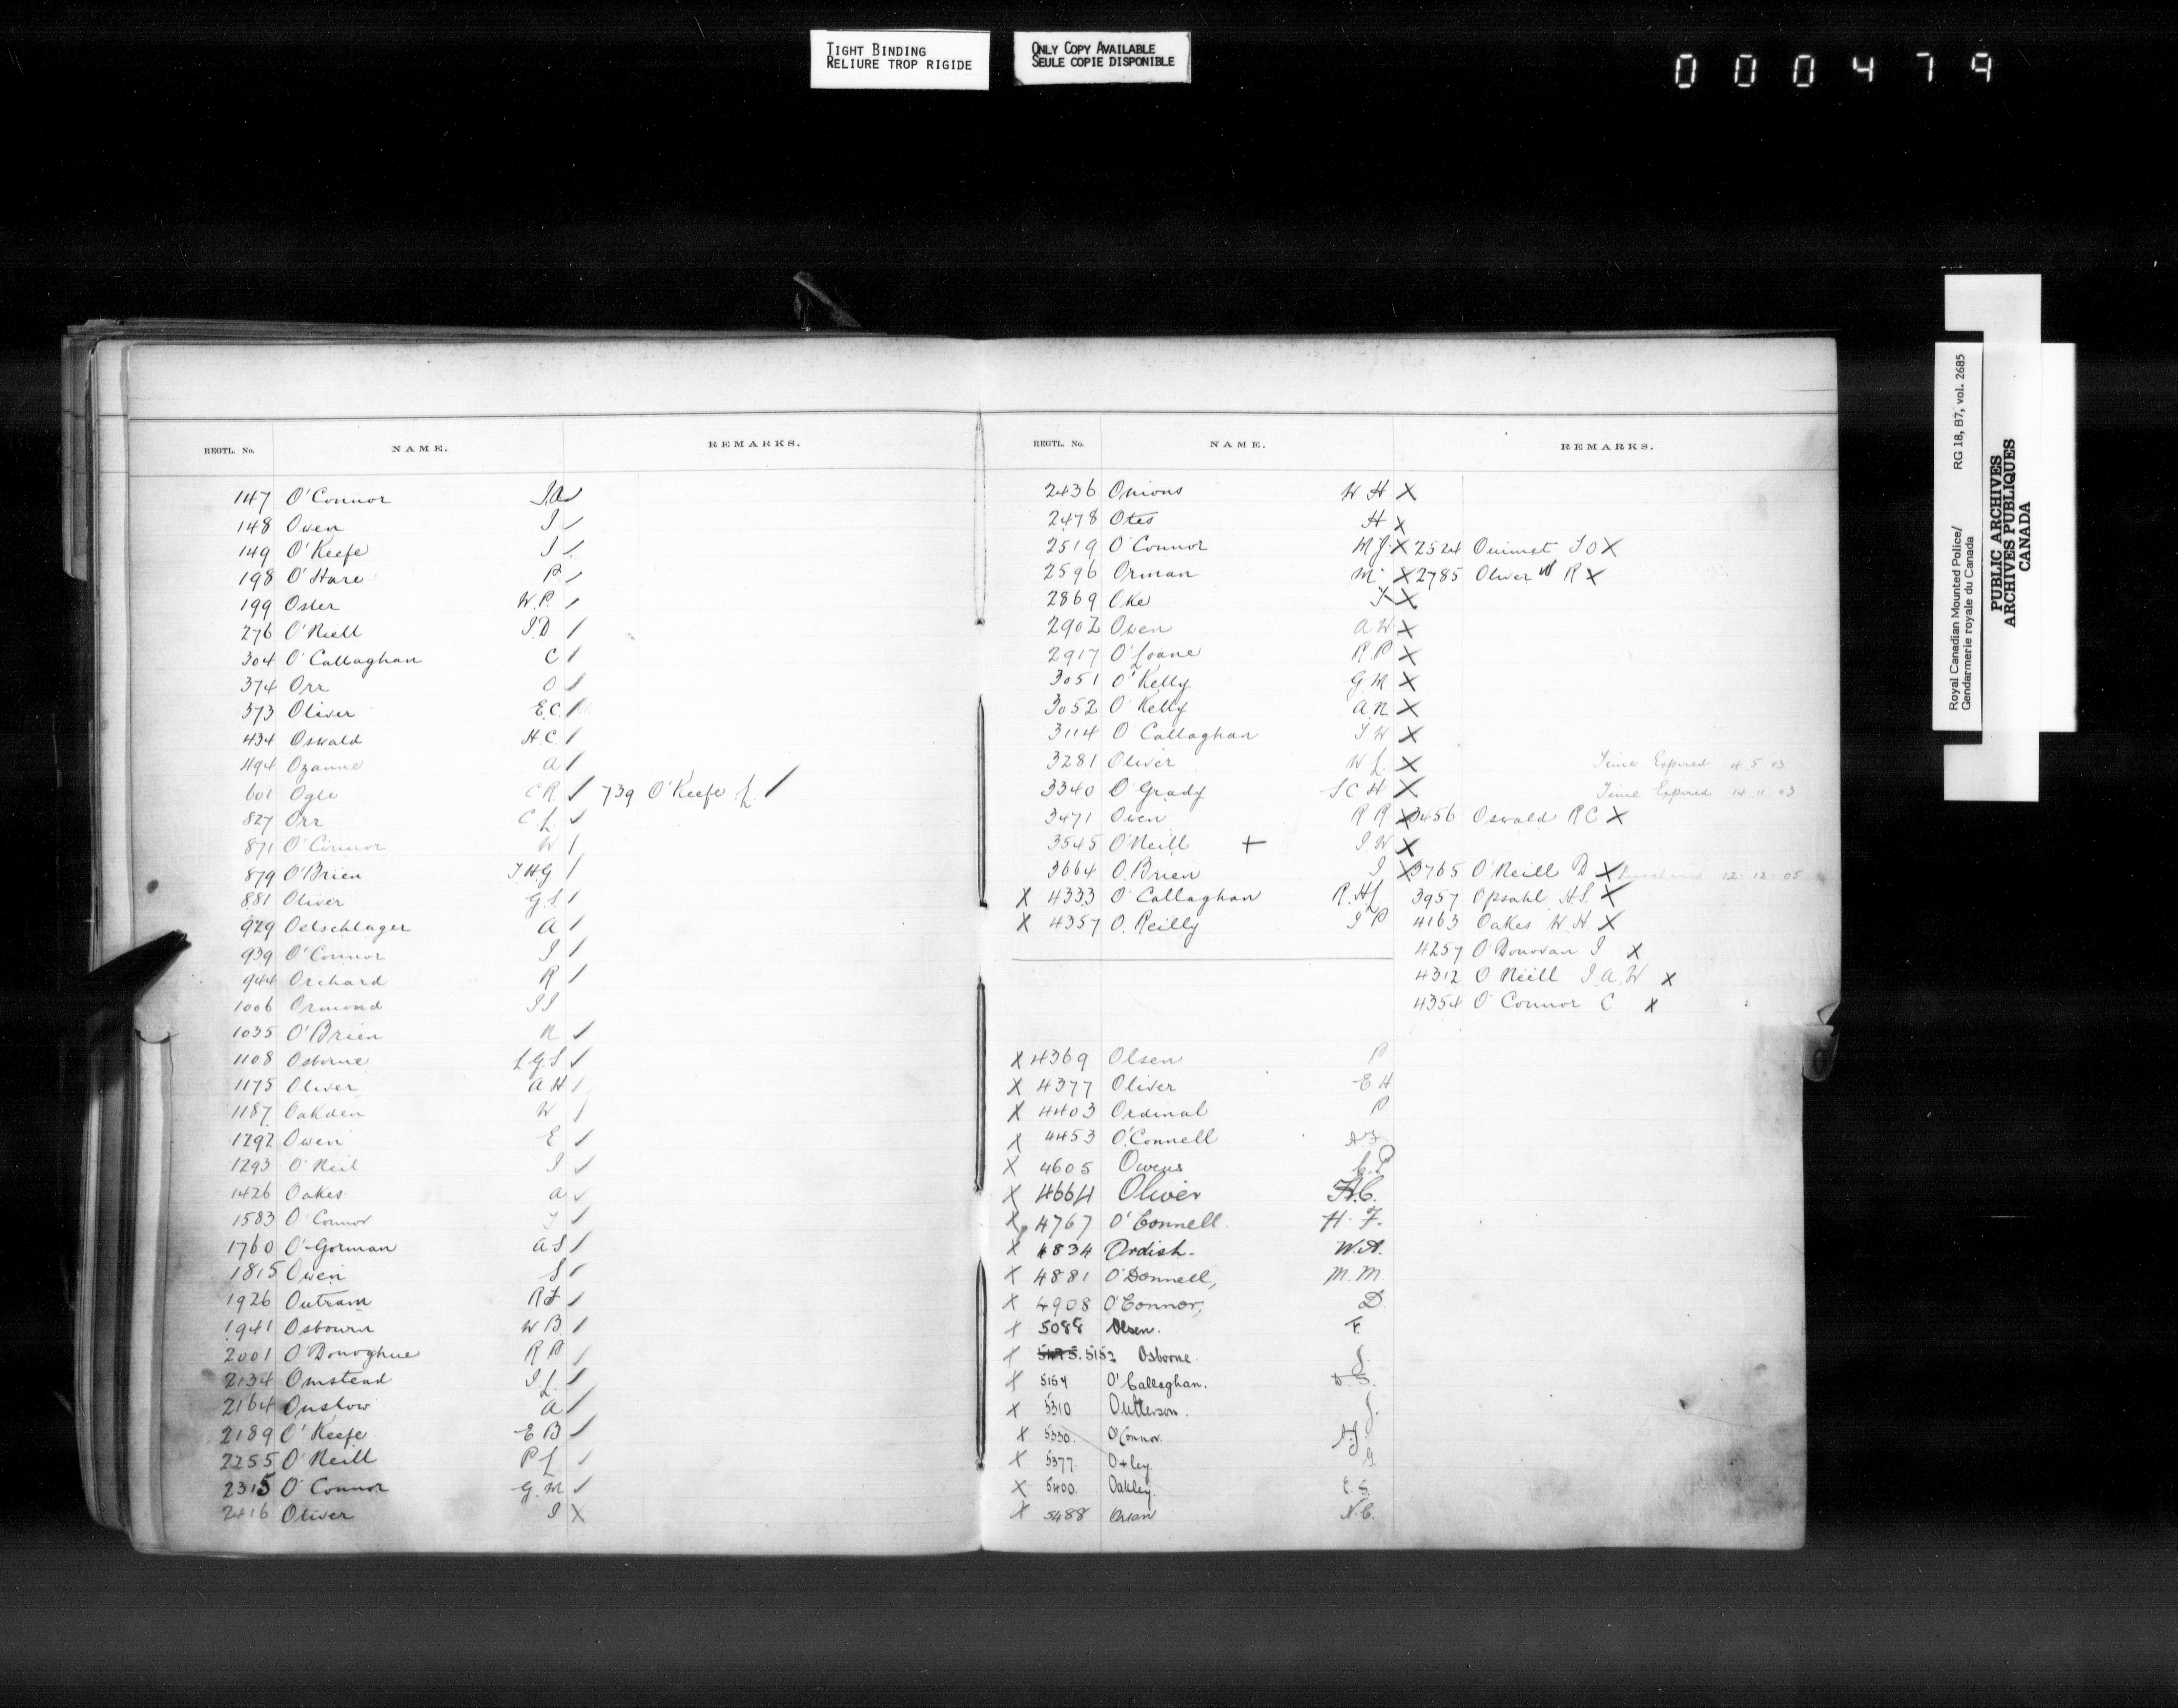 TIGHT BINDING
RELIURE TROP RIGIDE
ONLY COPY AVAILABLE
SEULE COPIE DISPONIBLE
000479
REGTL. No. NAME. REMARKS.
147 O'Connor J.A
148 Owen J
149 O'Keefe J
198 O'Hare P
199 Osler W.P.
276 O'Niell J.D.
304 O'Callaghan C
374 Orr O
373 Oliver E.C.
434 Oswald H.C.
494 Ozanne A
601 Ogle C R 739 O'Keefe L.
827 Orr C L
871 O'Connor W
879 O'Brien T H G
881 Oliver G.S.
929 Oelschlager A
939 O'Connor J
944 Orchard R
1006 Ormond J J
1035 O'Brien N
1108 Osborne L G S
1175 Oliver A H
1187 Oakden W
1292 Owen E
1293 O'Neil J
1426 Oakes A
1583 O'Connor T
1760 O'Gorman A S
1815 Owen S
1926 Outram R F
1941 Osbourn W B.
2001 O'Donoghue R P
2134 Omstead J L.
2164 Onslow A
2189 O'Keefe E B
2255 O'Neill P L
2315 O'Connor G.M
2416 Oliver J X
REGTL. No. NAME. REMARKS.
2436 Onions W H X
2478 Otes H X
2519 O'Connor M J. X 2524 Ouimet J O X
2596 Orman M X 2785 Oliver W R X
2869 Oke T X
2902 Owen A W X
2917 O'Loane R.P X
3051 O'Kelly G M X
3052 O'Kelly A.N X
3114 O'Callaghan T W X
3281 Oliver W L. X Time Expired 4.5.03
3340 O'Grady J C H X Time Expired 14.11.03
3471 Owen R R X 3456 Oswald R C X
3545 O'Neill + J W X
3664 O.Brien J X 3765 O'Neill D X 12.12.05
X 4333 O'Callaghan R.H L 3957 Opsahl H.S. X
X 4357 O.Reilly J P 4163 Oakes W.H. X
4257 O'Donovan J X
4312 O'Neill J.A.W X
4354 O'Connor C X
X 4369 Olsen P
X 4377 Oliver E H
X 4403 Ordinal P
X 4453 O'Connell
X 4605 Owens G.P
X 4664 Oliver H.C.
X 4767 O'Connell H. F.
X 4834 Ordish. W.A.
X 4881 O'Donnell, M.M.
X 4908 O'Connor, D.
X 5088 Olsen. F.
X 5152 Osborne. J.
X 5154 O'Callaghan. D.S.
X 5310 Outterson. J.
X 5330. O'Connor. A.J.
X 5377. Oxley. G.
X 5400. Oakley. E.S.
X 5488 N.C.
Royal Canadian Mounted Police/ RG 18, B7, vol. 2685
Gendarmerie royale du Canada
PUBLIC ARCHIVES
ARCHIVES PUBLIQUES
CANADA